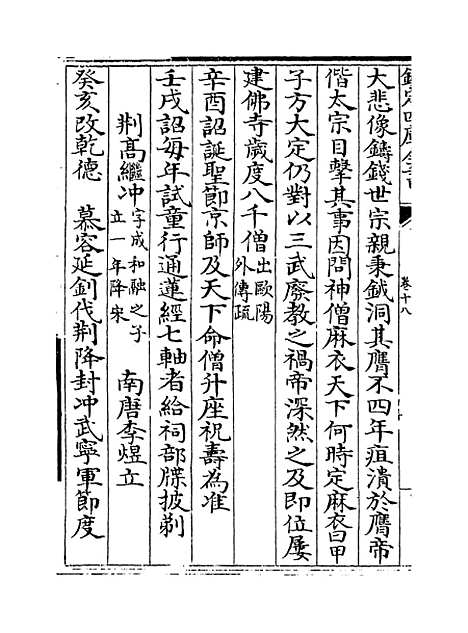 欽定四庫全書
卷十八
大悲像鑄錢世宗親秉鉞洞其膺不四年疽潰於膺帝
偕太宗目擊其事因問神僧麻衣天下何時定麻衣曰甲
子方大定仍對以三武廢教之禍帝深然之及即位屢
建佛寺歲度八千僧出歐陽外傳疏
辛酉詔誕聖節京師及天下命僧升座祝壽為准
壬戌詔每年試童行通蓮經七軸者給祠部牒披剃
荆高繼冲字成和融之子立一年降宋 南唐李煜立
癸亥改乾德 慕容延釗代荆降封冲武寧軍節度